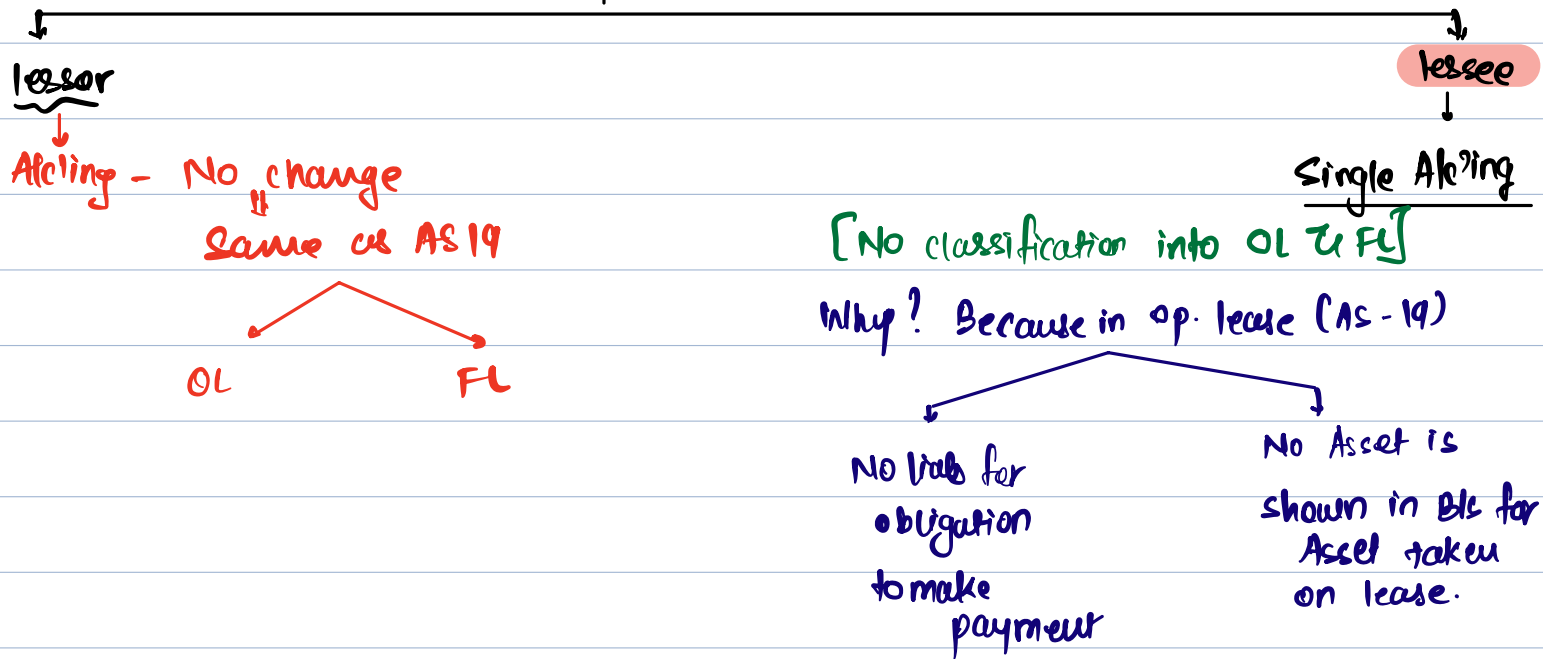 lessor
A/c'ing - No change
Same as AS 19
OL
FL
lessee
Single A/c'ing
[No classification into OL & FL]
Why? Because in op. lease (AS-19)
No liab for
obligation
to make
payment
No Asset is
shown in B/s for
Asset taken
on lease.